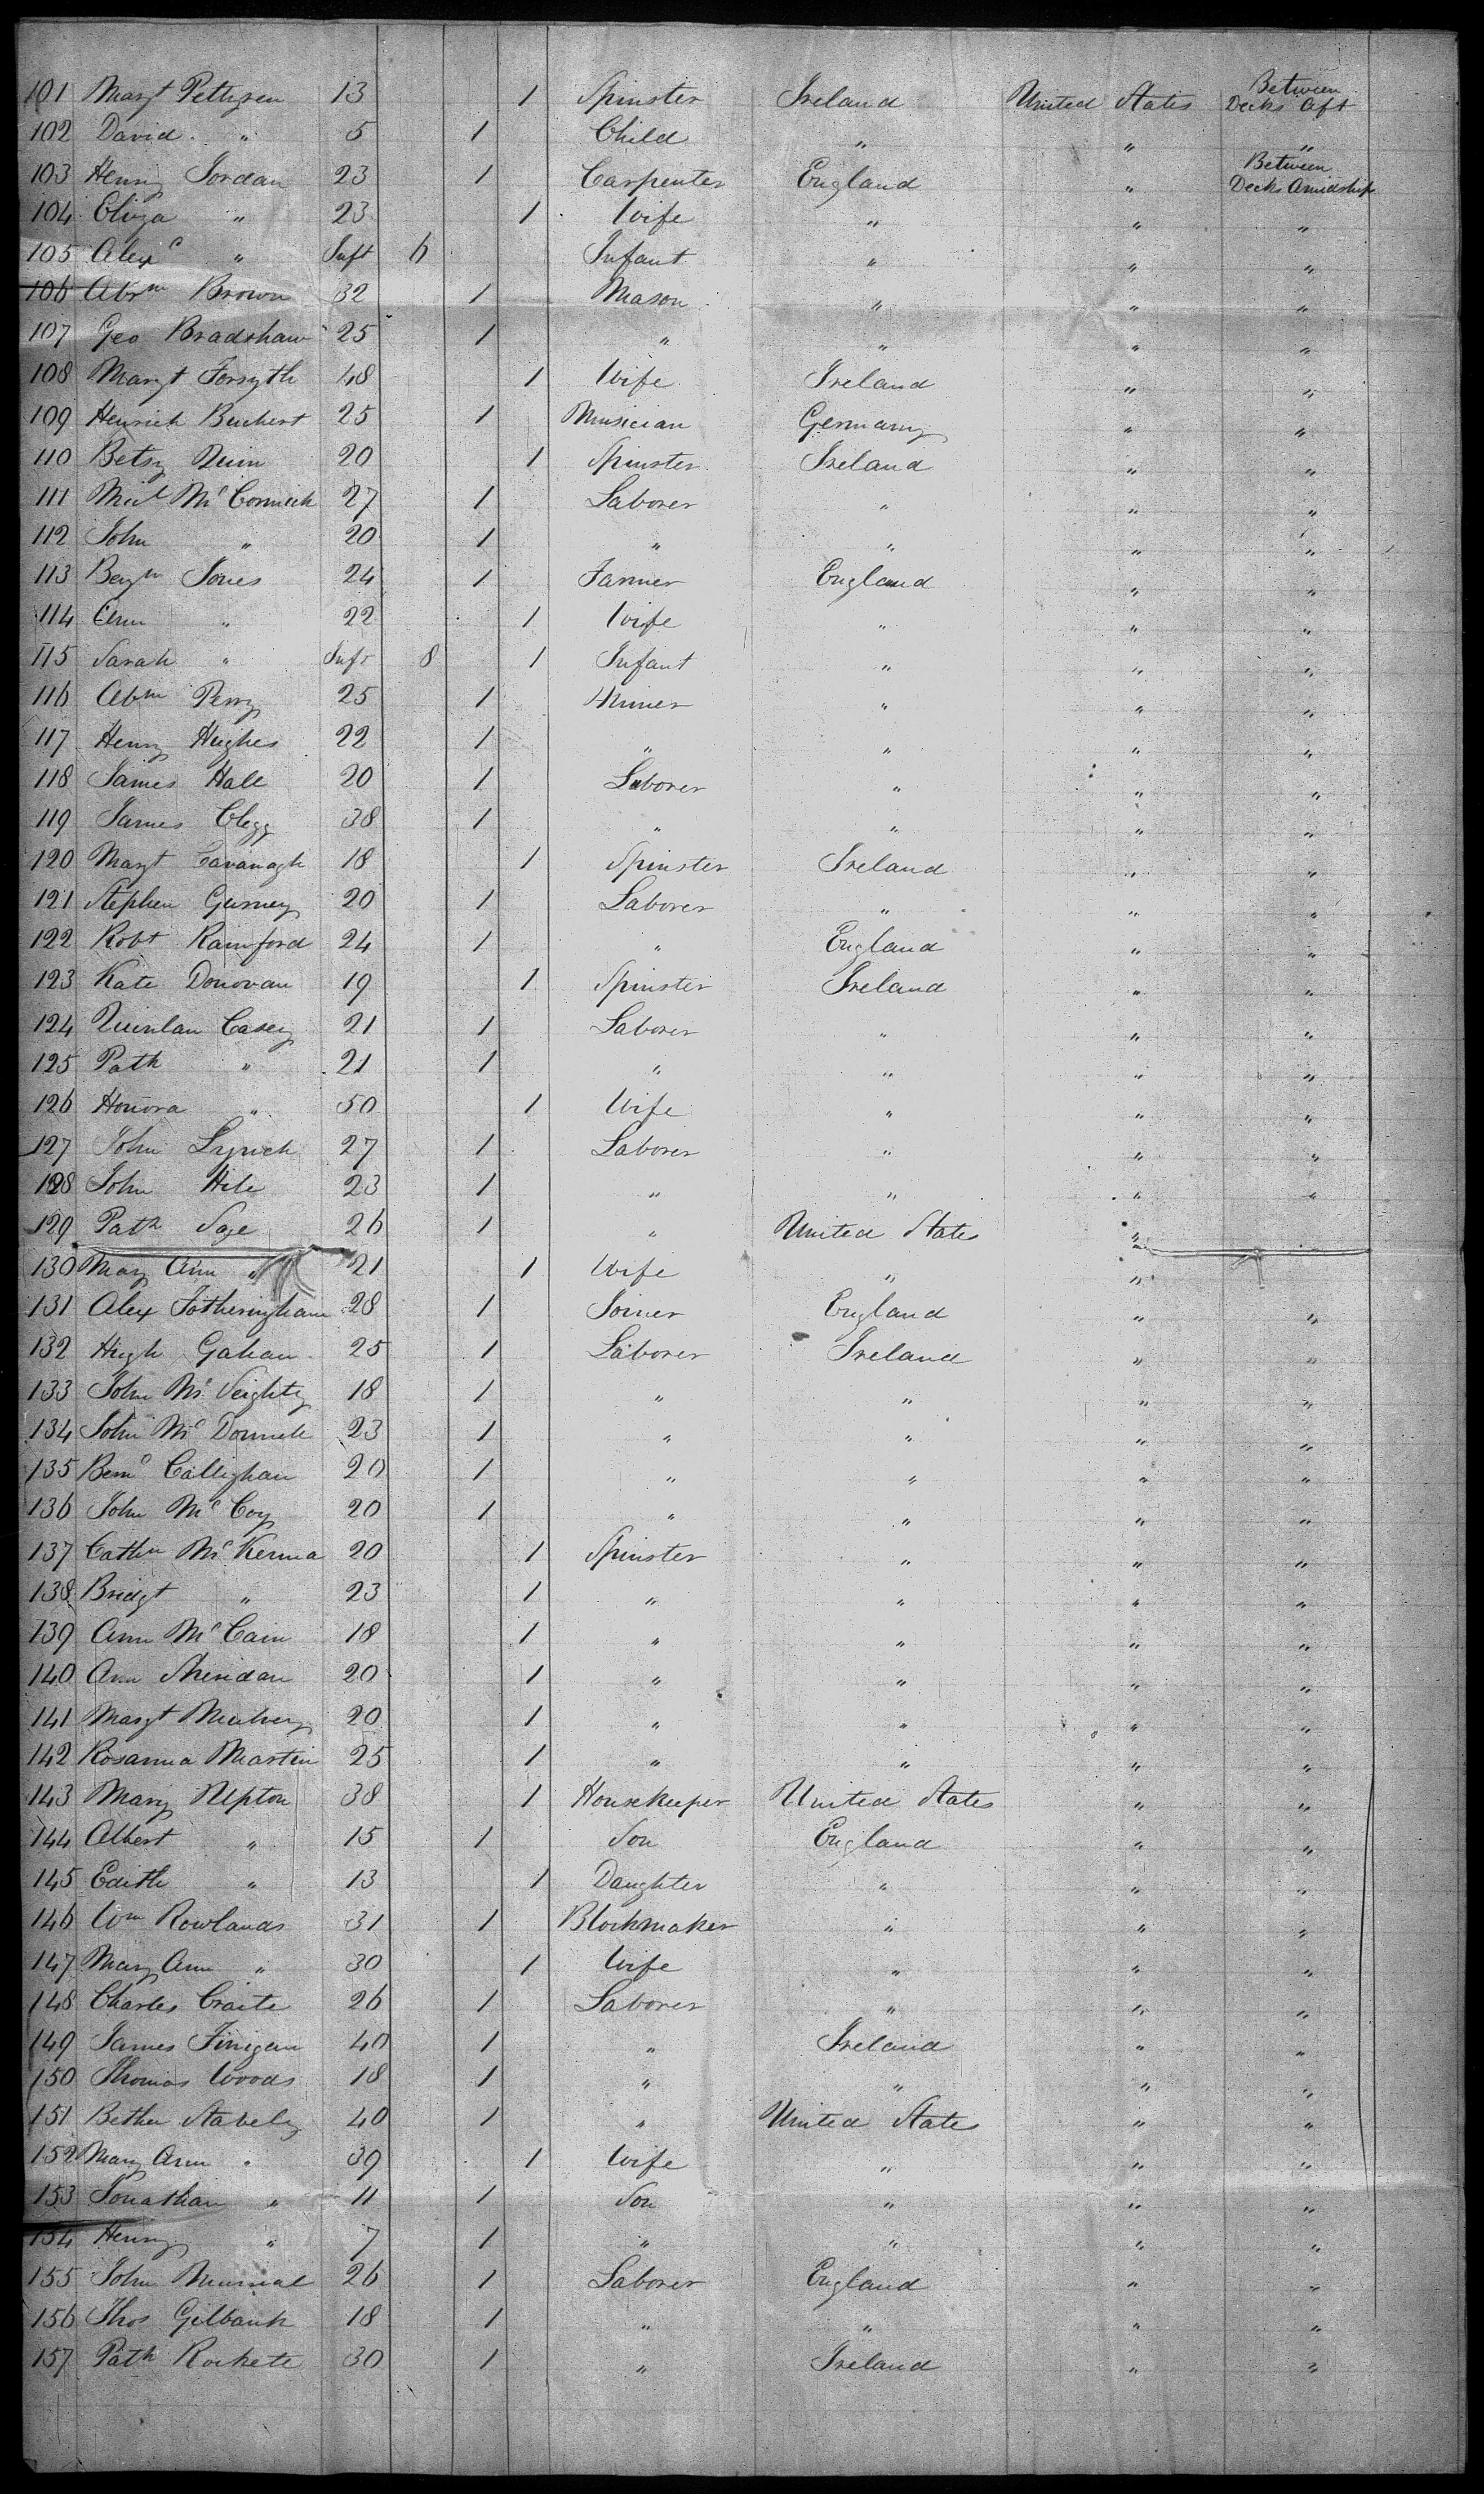 101 Margt Pettigrew 13 1 Spinster Ireland United States Between Decks Aft
102 David " 5 1 Child " " "
103 Henry Jordan 23 1 Carpenter England " Between Decks Amidship
104 Eliza " 23 1 Wife " " "
105 Alexr " Inft 6 Infant " " "
106 Abrm Brown 32 1 Mason " " "
107 Geo Bradshaw 25 1 " " " "
108 Margt Forsyth 48 1 Wife Ireland " "
109 Henrich Buchert 25 1 Musician Germany " "
110 Betsy Quin 20 1 Spinster Ireland " "
111 Micl McCormick 27 1 Laborer " " "
112 John " 20 1 " " " "
113 Benjn Jones 24 1 Farmer England " "
114 Ann " 22 1 Wife " " "
115 Sarah " Inft 8 1 Infant " " "
116 Abm Perry 25 1 Miner " " "
117 Henry Hughes 22 1 " " " "
118 James Hall 20 1 Laborer " " "
119 James Clegg 38 1 " " " "
120 Margt Cavanagh 18 1 Spinster Ireland " "
121 Stephen Gurney 20 1 Laborer " " "
122 Robt Rainford 24 1 " England " "
123 Kate Donovan 19 1 Spinster Ireland " "
124 Quinlan Casey 21 1 Laborer " " "
125 Patk " 21 1 " " " "
126 Honora " 50 1 Wife " " "
127 John Lynch 27 1 Laborer " " "
128 John Hile 23 1 " " " "
129 Patk Sage 26 1 " United States "
130 Mary Ann " 21 1 Wife " "
131 Alex Fotheringham 28 1 Joiner England " "
132 Hugh Gahan 25 1 Laborer Ireland " "
133 John Mc 18 1 " " " "
134 John McDonnell 23 1 " " " "
135 Bernd Callighan 20 1 " " " "
136 John McCoy 20 1 " " " "
137 Cathn McKenna 20 1 Spinster " " "
138 Bridgt " 23 1 " " " "
139 Ann McCain 18 1 " " " "
140 Ann Sheridan 20 1 " " " "
141 Margt Mulvey 20 1 " " " "
142 Rosanna Martin 25 1 " " " "
143 Mary Upton 38 1 Housekeeper United States " "
144 Albert " 15 1 Son England " "
145 Edith " 13 1 Daughter " " "
146 Wm Rowlands 31 1 Blockmaker " " "
147 Mary Ann " 30 1 Wife " " "
148 Charles Craite 26 1 Laborer " " "
149 James Finigan 40 1 " Ireland " "
150 Thomas Woods 18 1 " " " "
151 Bether Stabely 40 1 " United States " "
152 Mary Ann " 39 1 Wife " " "
153 Jonathan " 11 1 Son " " "
154 Henry " 7 1 " " " "
155 John 26 1 Laborer England " "
156 Thos Gilbank 18 1 " " " "
157 Patk Rockett 30 1 " Ireland " "